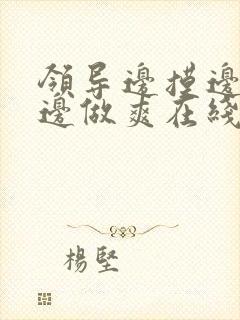 領导邊摸邊
邊做爽在綫
楊堅